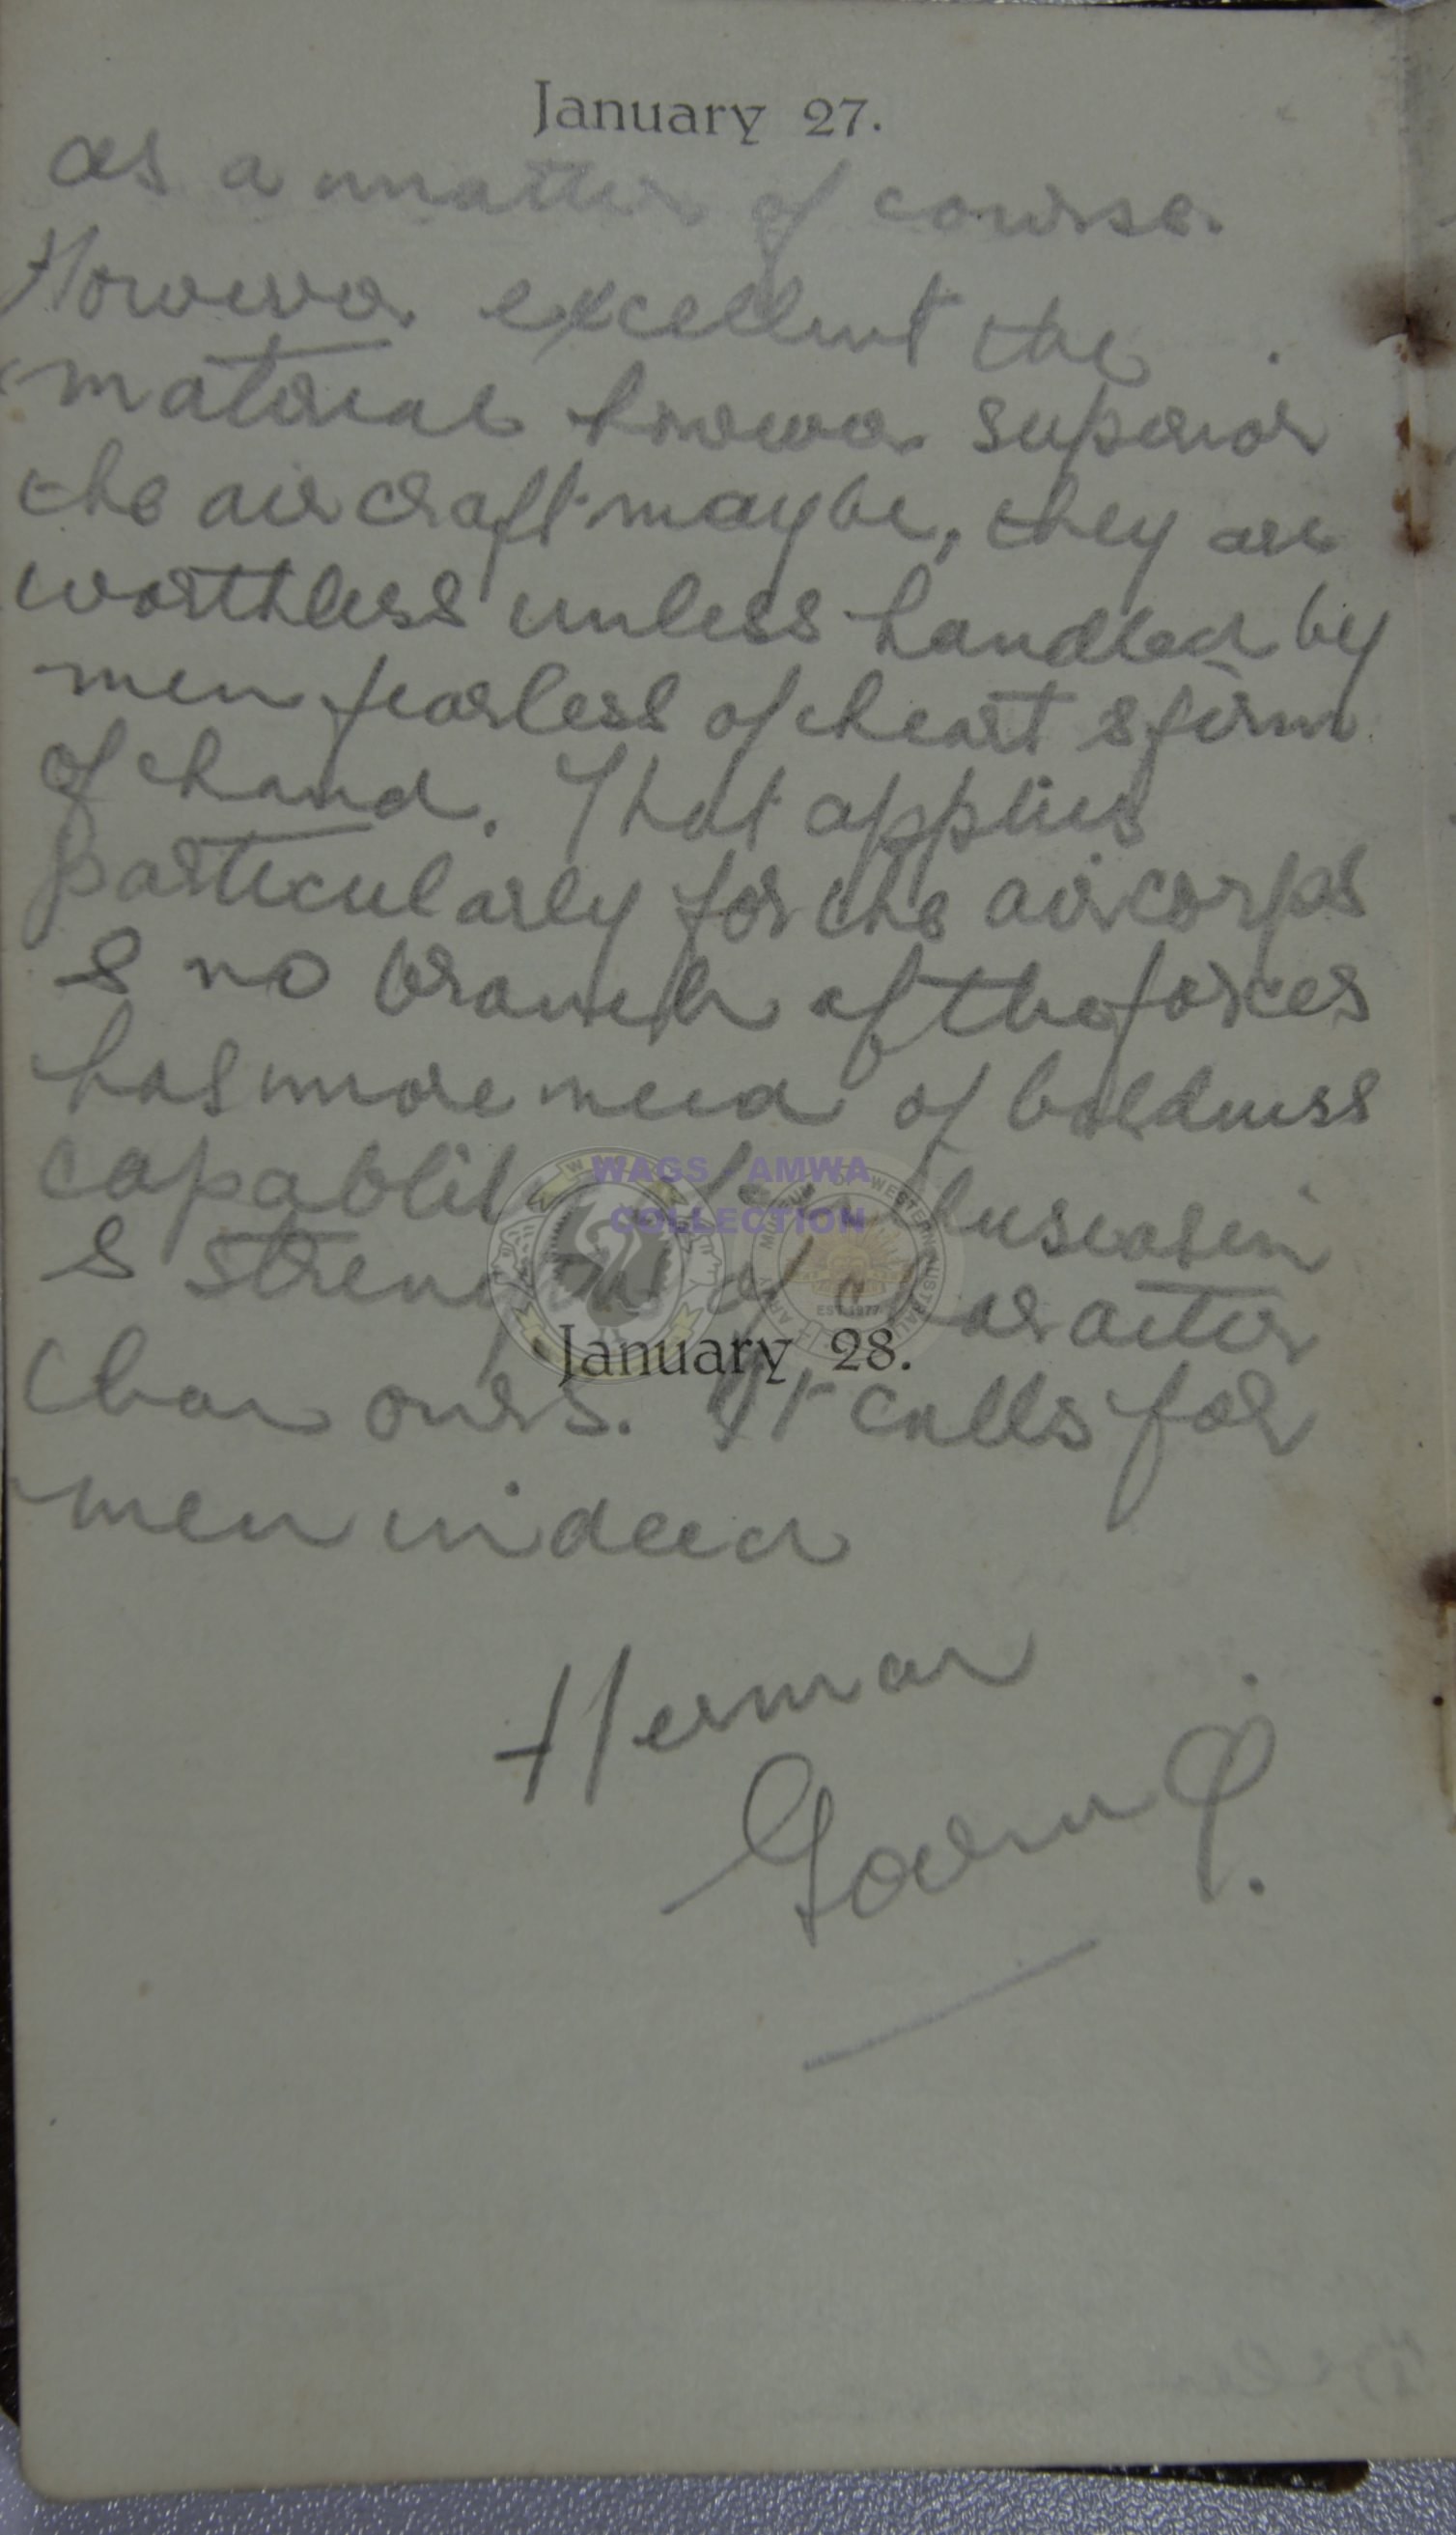 January 27.
as a matter of course.
However excellent the
material however superior
the aircraft maybe, they are
worthless unless handled by
men fearless of heart & firm
of hand. That applies
particularly for the air corps
& no branch of the forces
has more need of boldness
WAGS - AMWA
COLLECTION
& strength of character
January 28.
than ours. It calls for
men indeed
Herman
Goering.